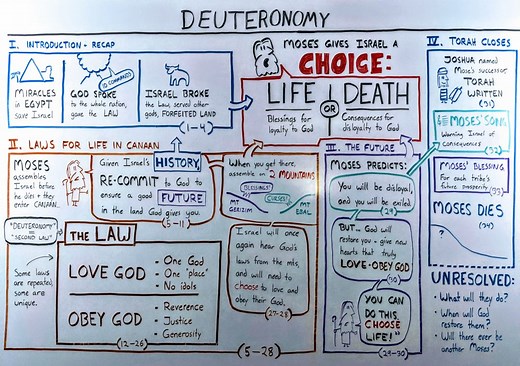 DEUTERONOMY
I. INTRODUCTION - RECAP
MIRACLES
in EGYPT
save Israel
10 COMMANDS
GOD SPOKE
to the whole nation,
gave the LAW
ISRAEL BROKE
the Law, served other
gods, FORFEITED LAND
(1-4)
MOSES GIVES ISRAEL A
CHOICE:
LIFE OR DEATH
Blessings for
loyalty to God
Consequences for
disloyalty to God
II. LAWS FOR LIFE IN CANAAN
MOSES
assembles
Israel before
he dies + they
enter CANAAN
Given Israel's HISTORY,
RE-COMMIT to God to
ensure a good FUTURE
in the land God gives you.
(5-11)
When you get there,
assemble on 2 MOUNTAINS
BLESSINGS!
CURSES!
MT
GERIZIM
MT
EBAL
"DEUTERONOMY"
=
"SECOND LAW"
Some laws
are repeated,
some are
unique.
THE LAW
LOVE GOD
- One God
- One "place"
- No idols
OBEY GOD
- Reverence
- Justice
- Generosity
(12-26)
Israel will once
again hear God's
laws from the mts.
and will need to
choose to love and
obey their God.
(27-28)
(5-28)
III. THE FUTURE
MOSES PREDICTS:
You will be disloyal,
and you will be exiled.
(29)
BUT... God will
restore you + give new
hearts that truly
LOVE + OBEY GOD
(30)
YOU CAN
DO THIS.
CHOOSE
LIFE!"
(29-30)
IV. TORAH CLOSES
JOSHUA named
Moses's successor,
TORAH
WRITTEN
(31)
MOSES' SONG
Warning Israel of
consequences
(32)
MOSES' BLESSING
For each tribe's
future prosperity
(33)
MOSES DIES
(34)
UNRESOLVED:
• What will they do?
• When will God
restore them?
• Will there ever be
another Moses?